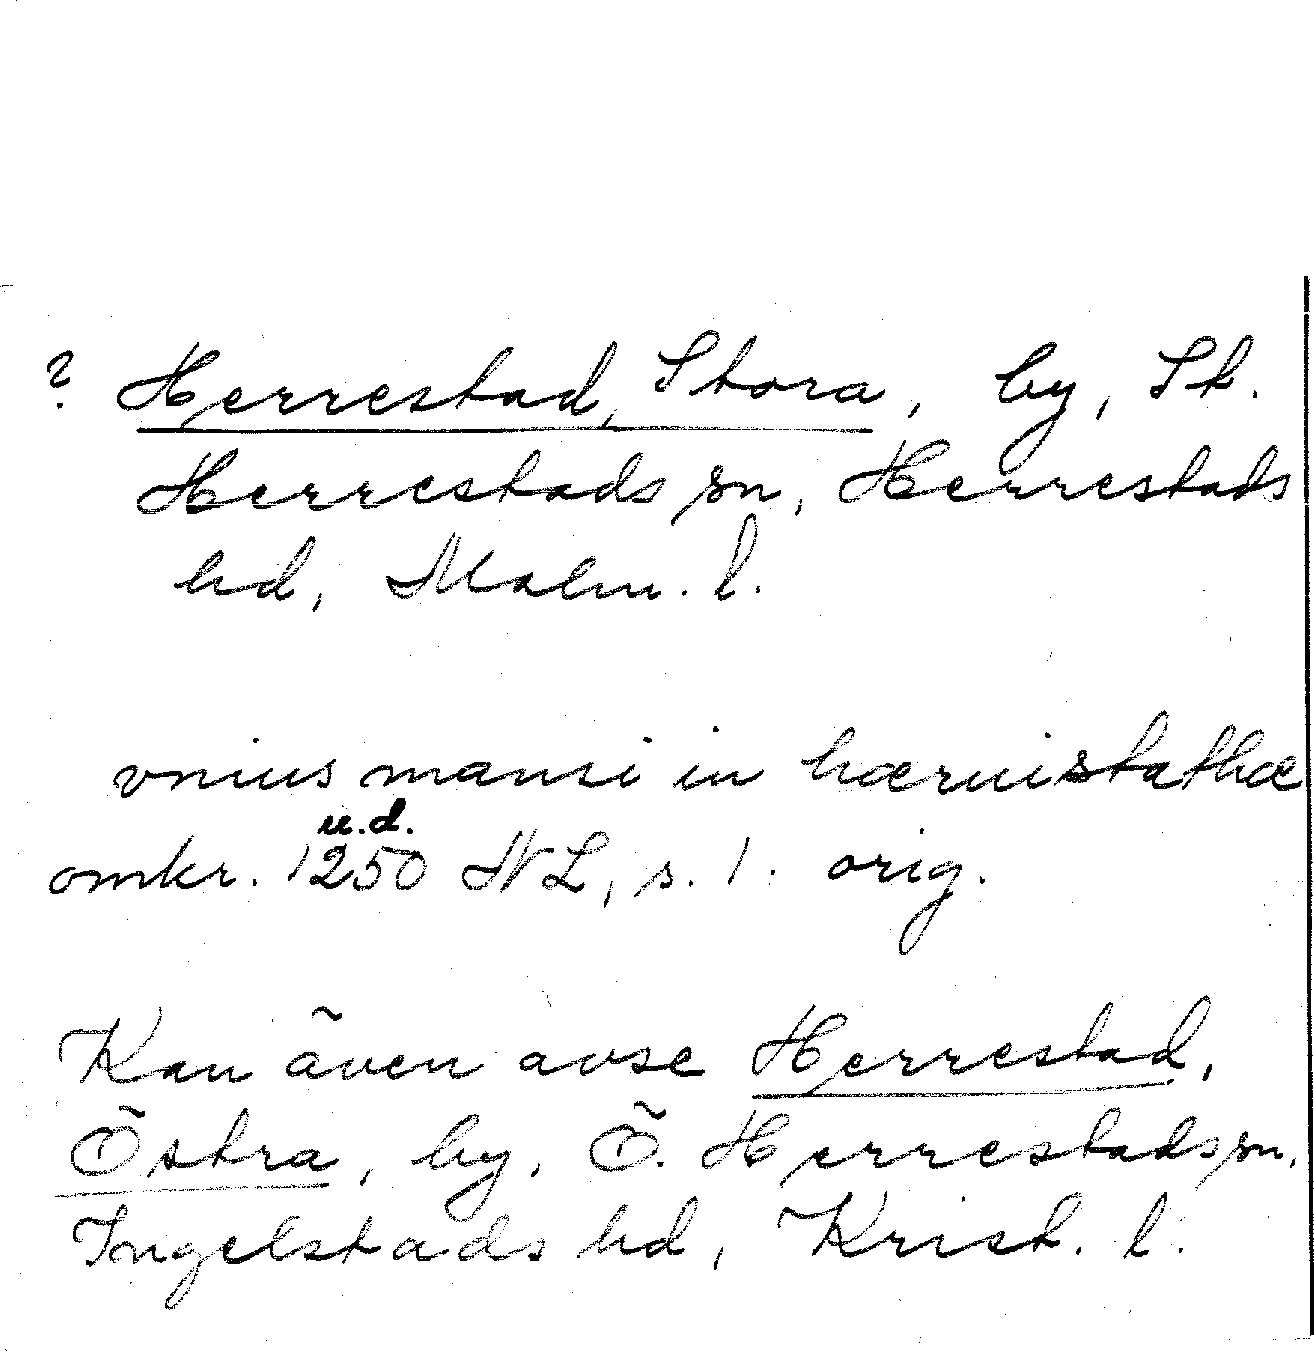 ? Herrestad, Stora, by, St.
Herrestads sn, Herrestads
hd, Malm. l.
vnius mansi in hærristathæ
u.d.
omkr. 1250 NL, s. 1. orig.
Kan även avse Herrestad,
Östra, by, Ö. Herrestads sn,
Ingelstads hd, Krist. l.